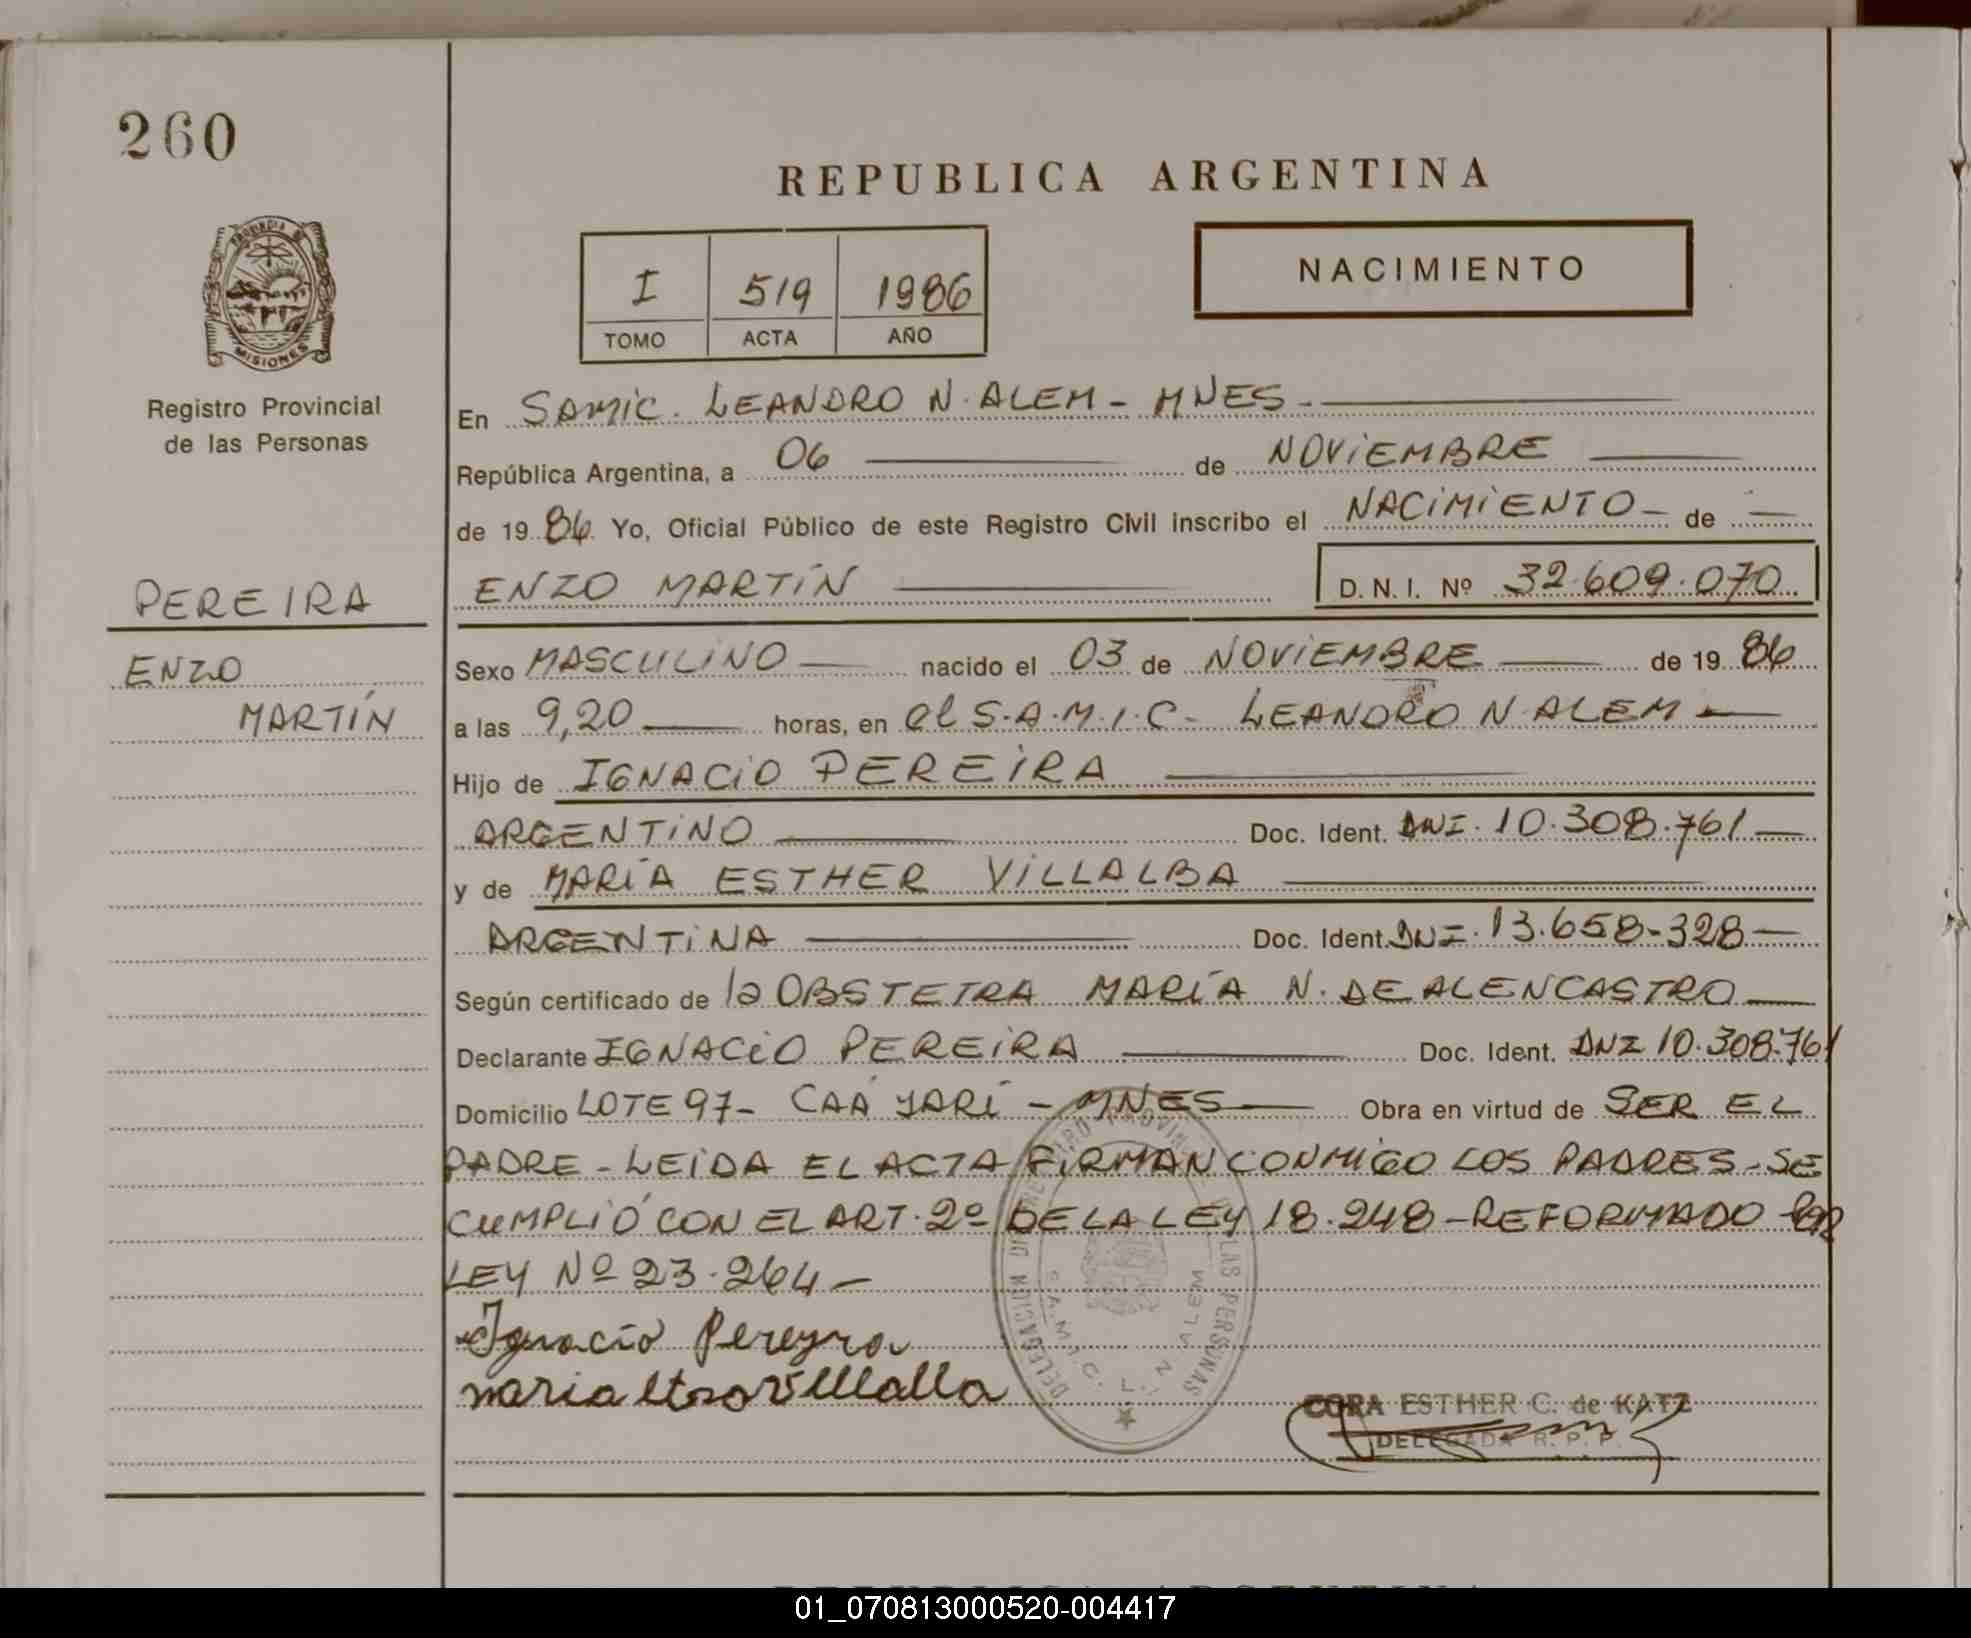 260
REPUBLICA ARGENTINA
NACIMIENTO
I 519 1986
TOMO ACTA AÑO
PROVINCIA DE
MISIONES
Registro Provincial
de las Personas
PEREIRA
ENZO
MARTÍN
En SAMIC. LEANDRO N. ALEM - MNES -
República Argentina, a 06 de NOVIEMBRE
de 19 86. Yo, Oficial Público de este Registro Civil inscribo el NACIMIENTO - de -
ENZO MARTÍN D.N.I. Nº 32.609.070
Sexo MASCULINO nacido el 03 de NOVIEMBRE de 19 86
a las 9,20 horas, en el S.A.M.I.C. LEANDRO N ALEM -
Hijo de IGNACIO PEREIRA
ARGENTINO Doc. Ident. DNI. 10.308.761 -
y de MARÍA ESTHER VILLALBA
ARGENTINA Doc. Ident. DNI. 13.658.328 -
Según certificado de la OBSTETRA MARÍA N. DE ALENCASTRO
Declarante IGNACIO PEREIRA Doc. Ident. DNI 10.308.761
Domicilio LOTE 97 - CAÁ YARÍ - MNES - Obra en virtud de SER EL
PADRE - LEIDA EL ACTA FIRMAN CONMIGO LOS PADRES - SE
CUMPLIÓ CON EL ART. 2º DE LA LEY 18.248 - REFORMADO POR
LEY Nº 23.264 -
Ignacio Pereyra
maria villalla
S.A.M.I.C. L. N ALEM
CORA ESTHER C. de KATZ
DELEGADA R. P. P.
01_070813000520-004417